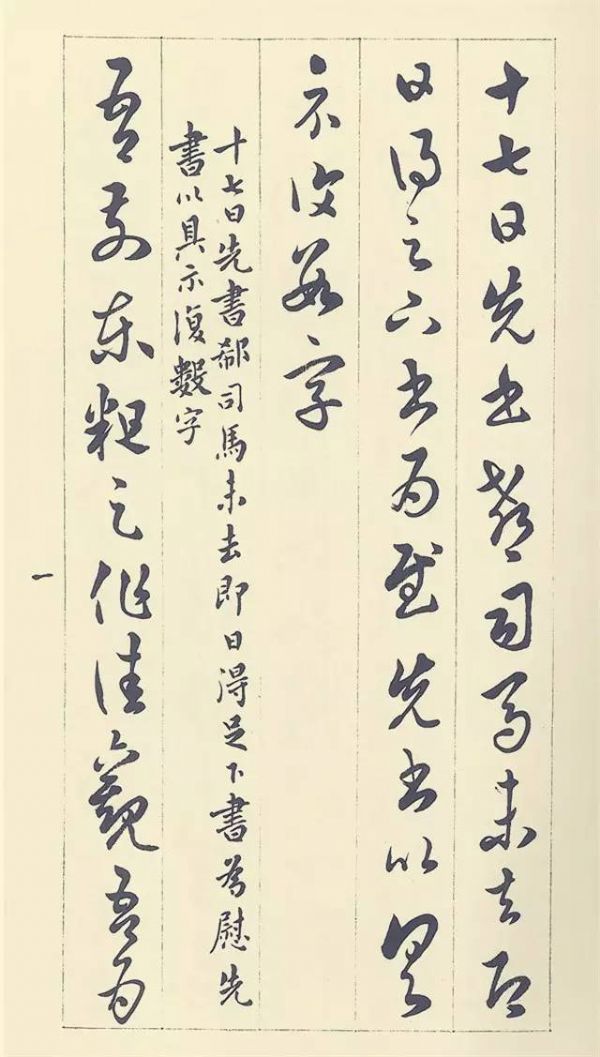 十七日先書郗司馬未去即
日得足下書為慰先書以具
示復數字
十七日先書郗司馬未去即日得足下書為慰先
書以具示復數字
吾前東粗足作佳觀吾為
一